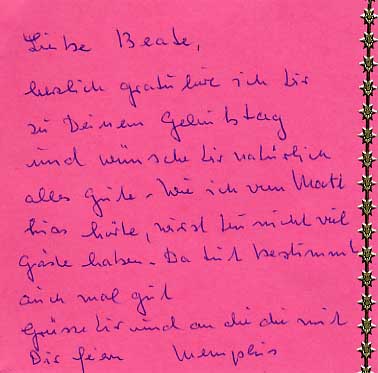 Liebe Beate,
herzlich gratuliere ich Dir
zu Deinem Geburtstag
und wünsche Dir natürlich
alles Gute. Wie ich von Matt
hias hörte, wirst Du nicht viel
Gäste haben. Da tut bestimmt
auch mal gut
Grüsse Dir und an die die mit
Dir feiern Memphis